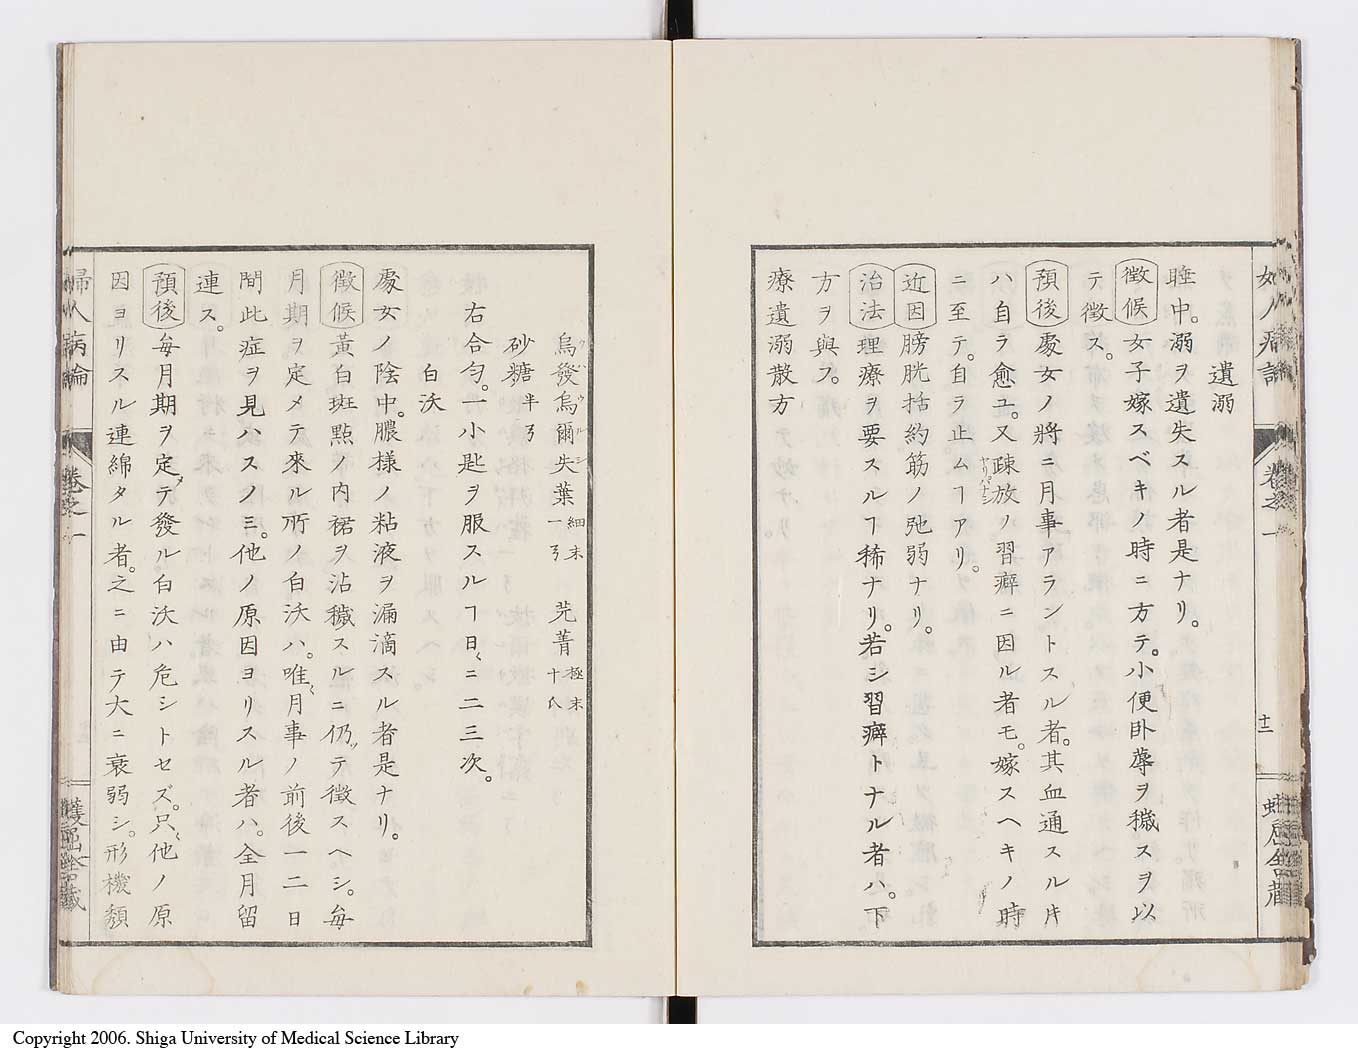 遺溺
睡中。溺ヲ遺失スル者是ナリ。
徴候女子嫁スベキノ時ニ方テ。小便臥蓐ヲ穢スヲ以
テ徴ス。
預後處女ノ將ニ月事アラントスル者。其血通スル𪜈
ハ自ラ愈ユ。又疎放ノ習癖ニ因ル者モ。嫁スヘキノ時
ニ至テ。自ラ止ムヿアリ。
近因膀胱括約筋ノ弛弱ナリ。
治法理療ヲ要スルヿ稀ナリ。若シ習癖トナル者ハ。下
方ヲ與フ。
療遺溺散方
烏發烏爾失葉細末一弓 芫菁極末十氏
砂糖半弓
右合匀。一小匙ヲ服スルヿ日ニ二三次。
白沃
處女ノ陰中。膿様ノ粘液ヲ漏滴スル者是ナリ。
徴候黄白斑點ノ内裙ヲ沾穢スルニ仍テ徴スヘシ。毎
月期ヲ定メテ來ル所ノ白沃ハ。唯月事ノ前後一二日
間此症ヲ見ハスノミ。他ノ原因ヨリスル者ハ。全月留
連ス。
預後毎月期ヲ定テ發ル白沃ハ危シトセズ。只他ノ原
因ヨリスル連綿タル者。之ニ由テ大ニ衰弱シ。形機頽
婦人病論
卷之一
Copyright 2006. Shiga University of Medical Science Library